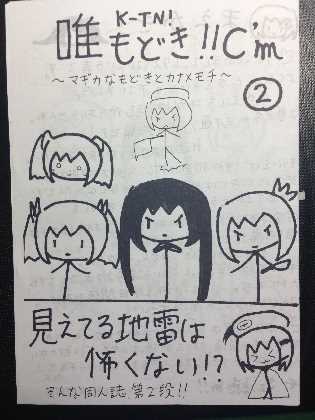 K-TN!
唯もどき!!C'm
～マギカなもどきとカナメモチ～
②
見えてる地雷は
怖くない!?
そんな同人誌第2段!!